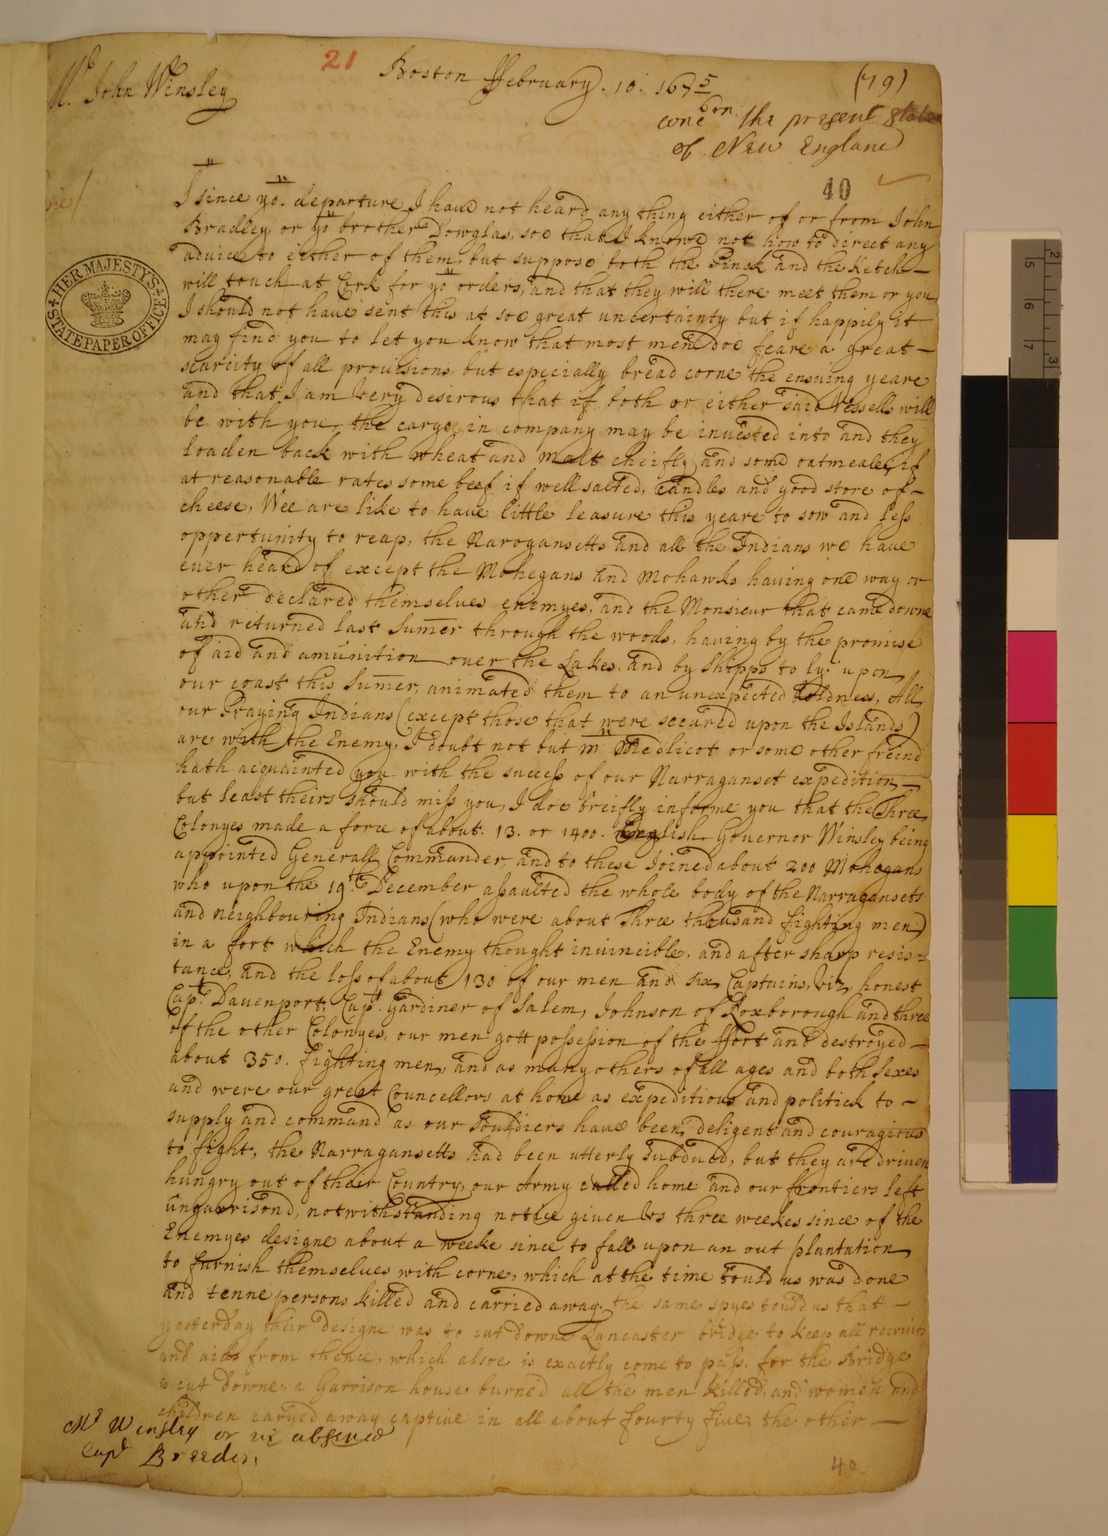 21
Mr. John Winsley
Boston ffebruary. 10. 167 5/6
(79)
concern the present State
of New England
40
HER MAJESTY'S STATE PAPER OFFICE
Since yor. departure I have not heard any thing either of or from John
Bradley, or yor brother Dowglas, soe that I know not how to direct any
advice to either of them, but suppose both the Pinck and the Ketch
will touch at Cork for yor orders, and that they will there meet them or you
I should not have sent this at soe great uncertainty but if happily it
may find you to let you know that most men doe feare a great
scarcity of all provisions but especially bread corne the ensuing yeare
and that I am very desirous that if both or either said vessells will
be with you, the cargoe in company may be invested into and they
loaden back with wheat and malt cheifly, and some oatmeale, if
at reasonable rates some beef if well salted, Candles and good store of
cheese, Wee are like to have little leasure this yeare to sow and less
oppertunity to reap, the Narogansetts and all the Indians we have
ever heard of except the Mohegans and Mohawks having one way or
other declared themselves enemyes, and the Monsieur that came downe
and returned last Sumer through the woods, having by the promise
of aid and amunition over the Lakes, and by Shipps to ly upon
our coast this Sumer, animated them to an unexpected boldness, All
our Praying Indians (except those that were secured upon the Islands)
are with the Enemy, I doubt not but mr Medlicot or some other freind
hath acquainted you with the success of our Narraganset expedition
but least theirs should miss you, I doe breifly informe you that the Three
Colonyes made a force of about. 13. or 1400. English Governor Winsley being
appointed Generall Commander, and to these Joined about 200 Mohegans
who upon the 19th December assaulted the whole body of the Narragansets
and neighbouring Indians (who were about Three thousand fighting men)
in a fort which the Enemy thought invincible, and after sharp resis=
tance, and the loss of about 130 of our men and six Captains, viz, honest
Capt. Davenport, Capt. Gardiner of Salem, Johnson of Roxborough and three
of the other Colonyes, our men gott possession of the ffort and destroyed
about 350. fighting men, and as many others of all ages and both Sexes
and were our great Councellors at home as expeditious and politick to
supply and command as our Souldiers have been deligent and couragious
to fight, the Narragansetts had been utterly Subdued, but they are driven
hungry out of their Country, our Army called home and our frontiers left
ungarrisond, notwithstanding notice given us three weekes since of the
Enemyes designe about a weeke since to fall upon an out plantation
to furnish themselves with corne, which at the time tould us was done
and tenne persons killed and carried away, the same spyes tould us that
yesterday their designe was to cut downe Lancaster bridge to keep all recruits
and aids from thence, which alsoe is exactly come to pass. for the Bridge
is cut downe, a Garrison house burned all the men killed, and women and
children caryed away captive in all about fourty five, the other
Mr Winsley or in absence
Capt Breeden
40